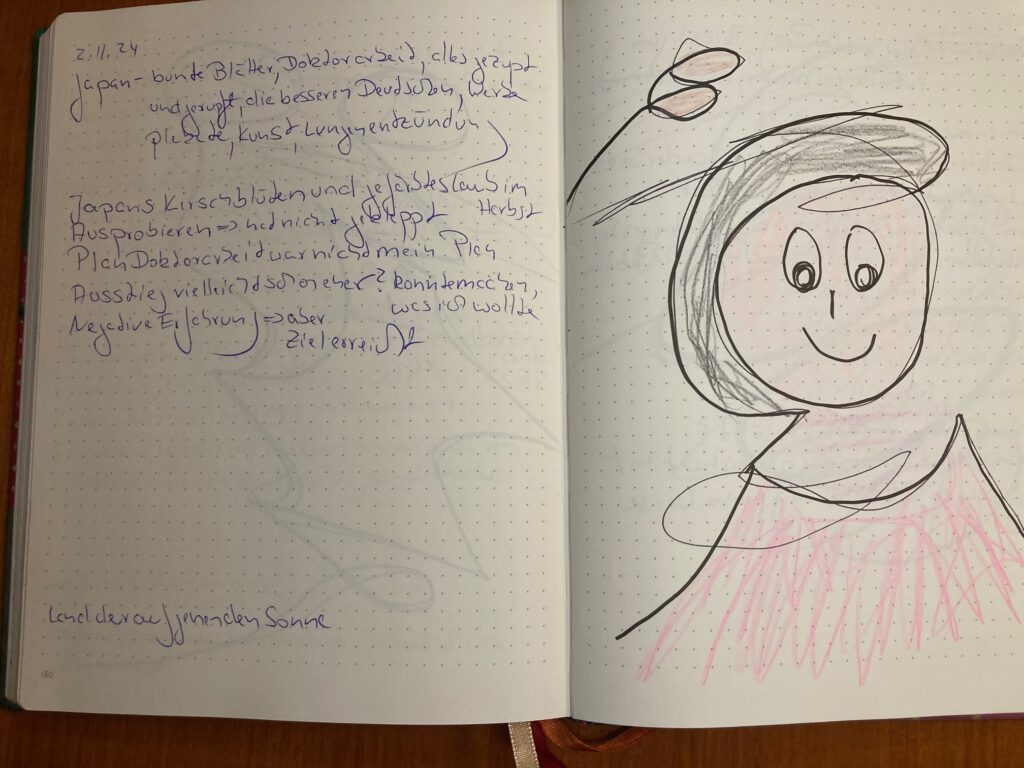 2.11.24
Japan - bunte Blätter, Doktorarbeit, alles gezupt
und gerupft, die besseren Deutschen, Werbe
plakate, Kunst, Lungenentzündung
Japans Kirschblüten und gefärbtes Laub im
Herbst
Ausprobieren => hat nicht geklappt
Plan Doktorarbeit war nicht mein Plan
Ausstieg vielleicht schon eher? konnte machen,
was ich wollte
Negative Erfahrung => aber
Ziel erreicht
Land der aufgehenden Sonne